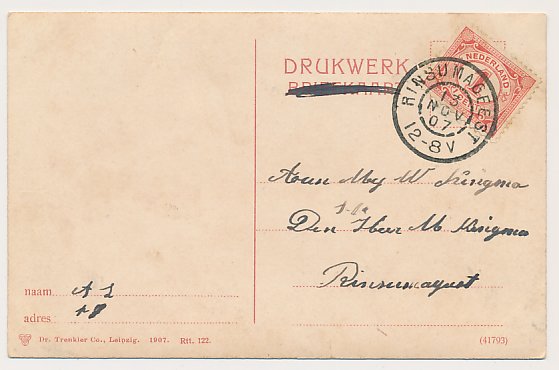 DRUKWERK
BRIEFKAART
NEDERLAND
RINSUMAGEEST
13
NOV
07
12-8V
Aan Mej W
Den Heer M
Rinsumageest
naam A L
adres
Dr. Trenkler Co., Leipzig. 1907. Rtt. 122.
(41793)